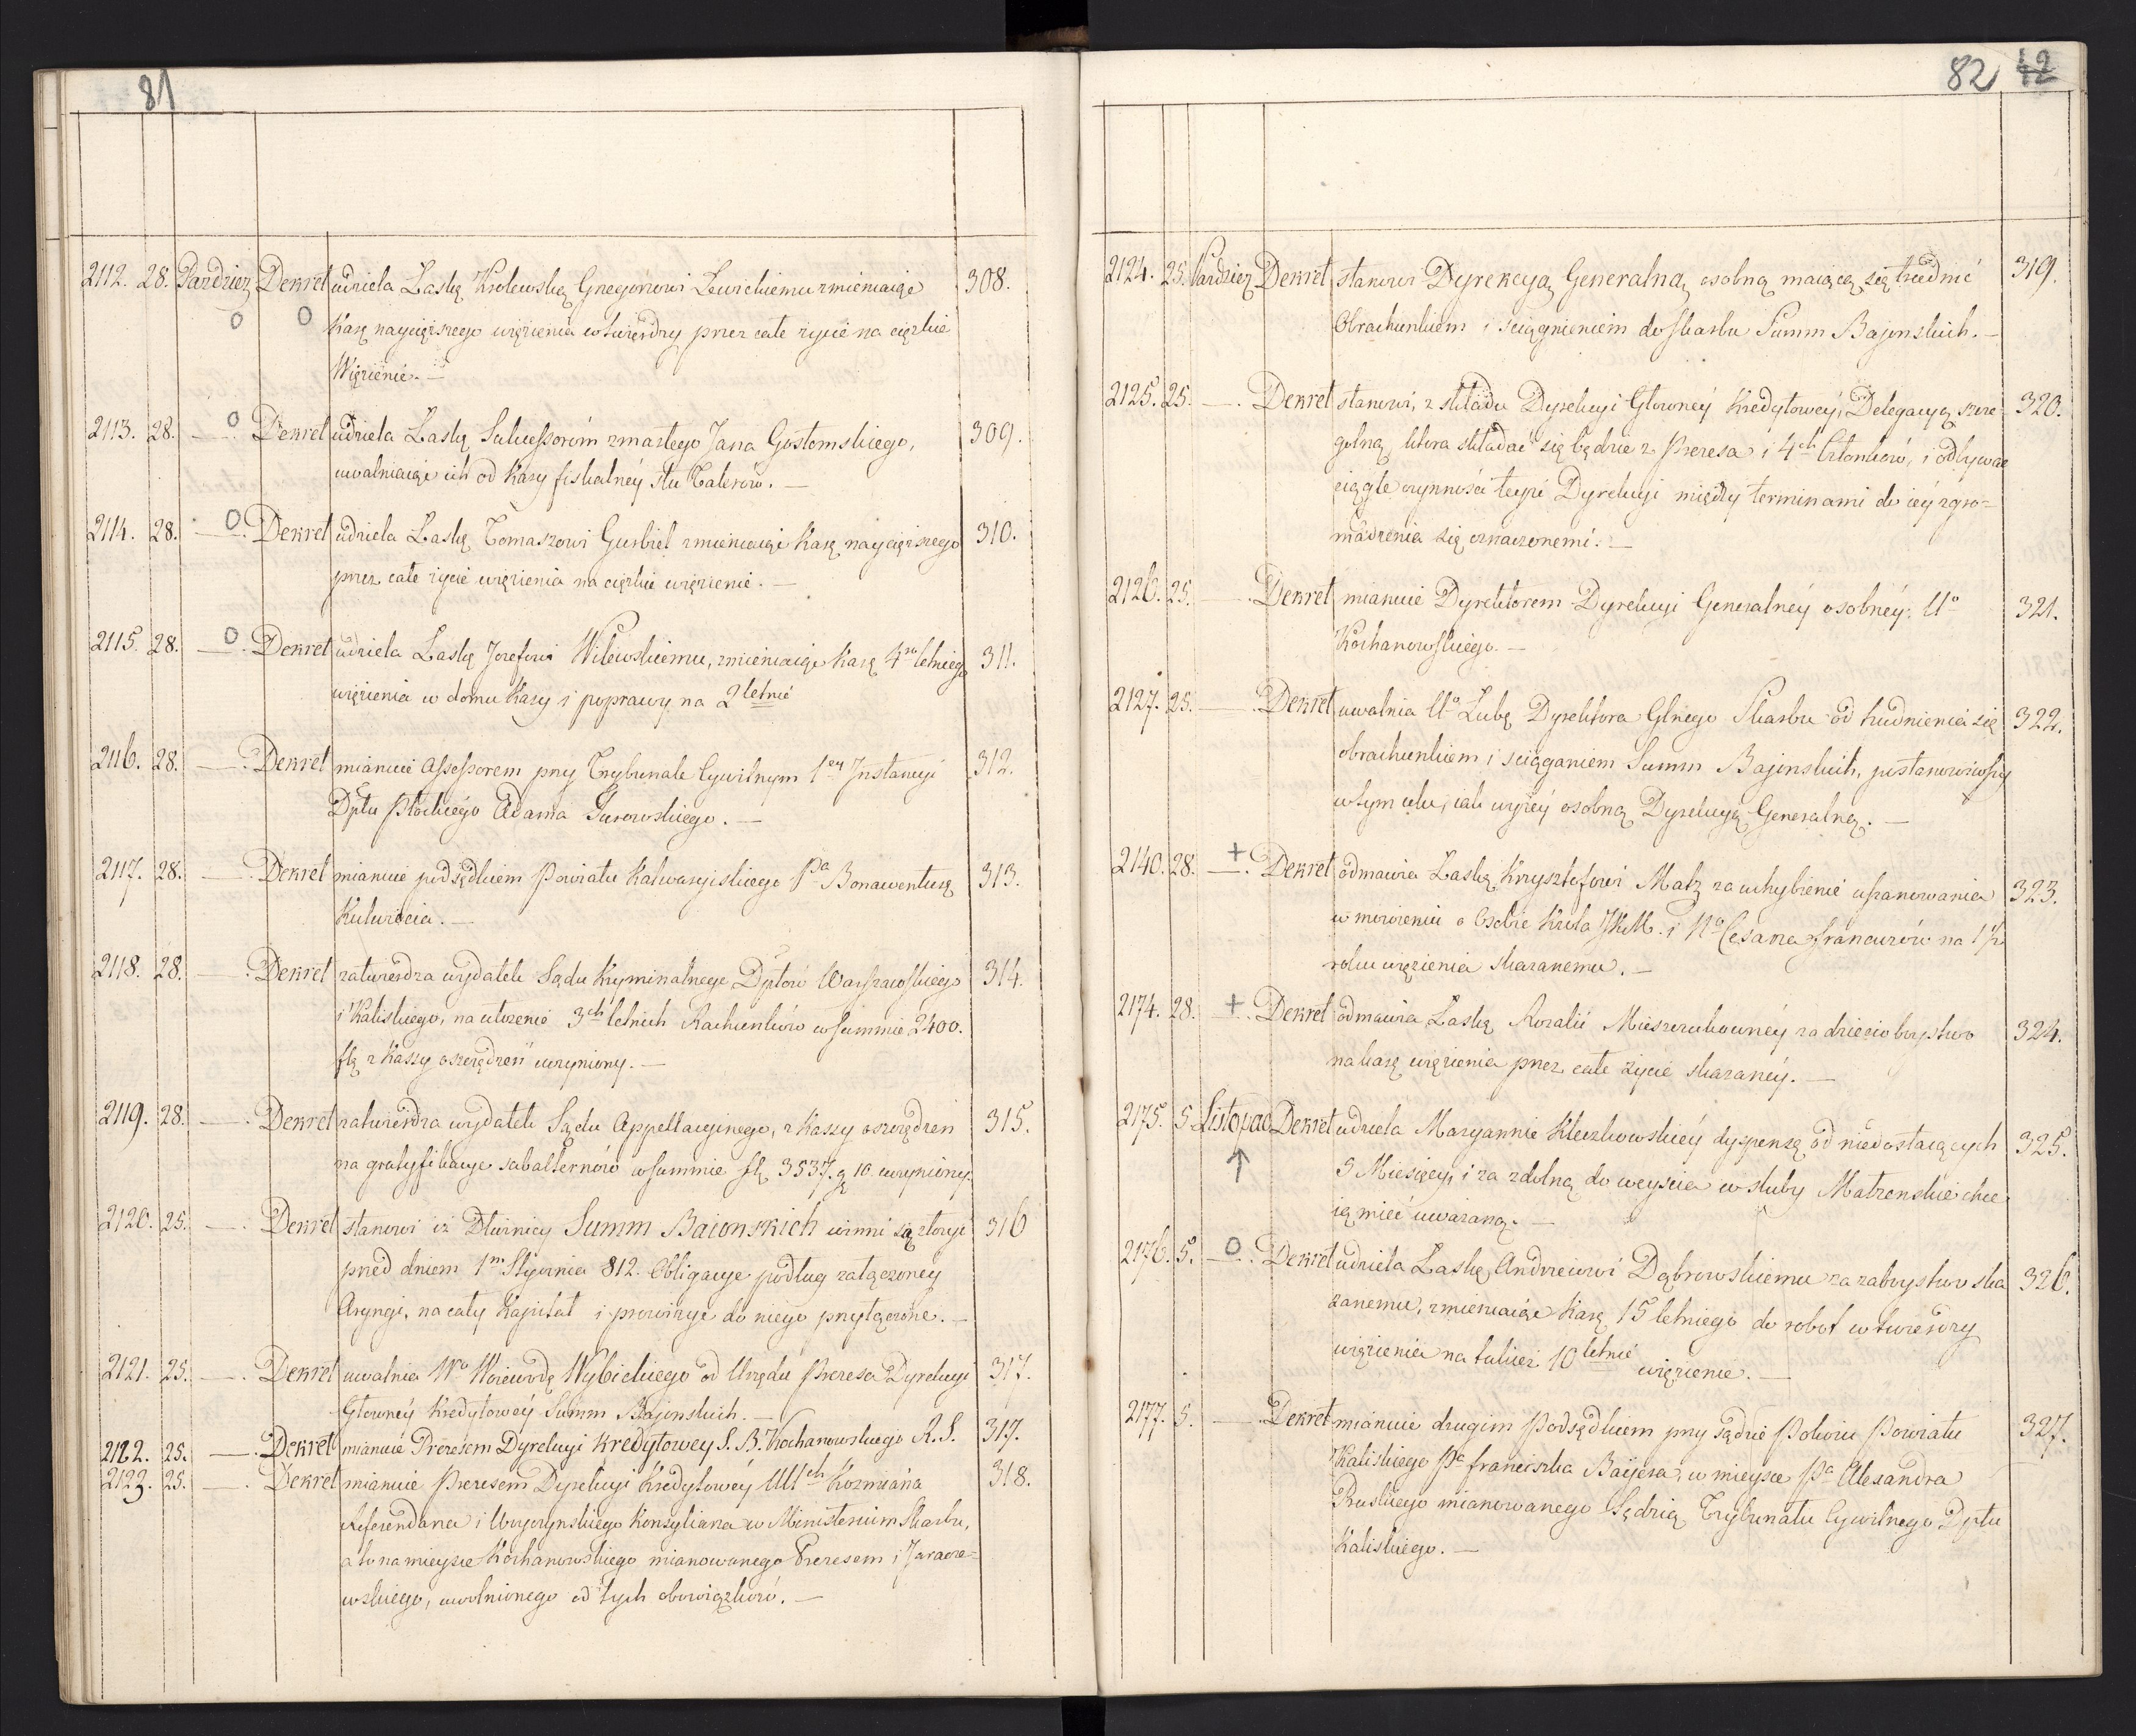 81
2112. 28. Pazdzier Dekret udziela Łaskę Krolewską Gregorzowi Lewickiemu zmieniaiąc 308.
Karę naycięższego więzienia w twierdzy przez całe życie na ciężkie
Więzienie. —
2113. 28. — Dekret udziela Łaskę Sukcessorom zmarłego Jana Gostomskiego, 309.
uwalniaiąc ich od Kary fiskalnéy stu Talerów. —
2114. 28. — Dekret udziela Łaskę Tomaszowi Gurbiel zmieniaiąc Karę naycięższego 310.
przez całe życie więzienia na ciężkie więzienie. —
2115. 28. — Dekret udziela Łaskę Jozefowi Wilewskiemu, zmieniaiąc Karę 4ro letniego 311.
więzienia w domu Kary i poprawy na 2 letnie
2116. 28. — Dekret mianuie Assessorem przy Trybunale Cywilnym 1ey Instancyi 312.
Dptu Płockiego Adama Gurowskiego. —
2117. 28. — Dekret mianuie podsędkiem Powiatu Kalwaryiskiego Pa Bonawenturę 313.
Kulwiecia. —
2118. 28. — Dekret zatwierdza wydatek Sądu Kryminalnego Dptow Warszawskiego 314.
i Kaliskiego, na ułożenie 3ch letnich Rachunków w summie 2400.
flą z Kassy oszczędzeń uczyniony. —
2119. 28. — Dekret zatwierdza wydatek Sądu Appellacyinego, z Kassy oszczędzeń 315.
na gratyfikacye subalternów w summie flą 3537. g 10 uczyniony.
2120. 25. — Dekret stanowi iż Dłużnicy Summ Baionskich winni są złożyć 316
przed dniem 1m Stycznia 812. Obligacye podług załączoney
Aryngi, na cały Kapitał i prowizye do niego przyłączone. —
2121. 25. — Dekret uwalnia Wo Woiewodę Wybickiego od Urzędu Prezesa Dyrekcyi 317.
Głownéy Kredytowéy Summ Bajonskich. —
2122. 25. — Dekret mianuie Prezesem Dyrekcyi Kredytowey S. B. Kochanowskiego R. S. 317.
2123. 25. — Dekret mianuie Prezesem Dyrekcyi Kredytowéy UUch Kozmiana 318.
Referendarza i Woyczynskiego Konsyliarza w Ministerium Skarbu,
a to na mieysce Kochanowskiego mianowanego Prezesem i Jaracze-
wskiego, uwolnionego od tych obowiązków. —
82 42
2124. 25. Pazdzier Dekret stanowi Dyrekcyą Generalną osobną maiącą się trudnić 319.
Obrachunkiem i sciągnieniem do skarbu Summ Bajonskich. —
2125. 25. — Dekret stanowi, z składu Dyrekcyi Głowney Kredytowéy, Delegacyą szcze- 320.
gólną, ktora składać się będzie z Prezesa i 4ch Członków, i odbywać
ciągle czynności teyże Dyrekcyi między terminami do iéy zgro-
madzenia się oznaczonemi. —
2126. 25. — Dekret mianuie Dyrektorem Dyrekcyi Generalnéy osobnéy Uo 321.
Kochanowskiego. —
2127. 25. — Dekret uwalnia Uo Lubę Dyrektora Glnego Skarbu od trudnienia się 322.
obrachunkiem i sciąganiem Summ Bajonskich, postanowiwszy
w tym celu, iak wyżéy osobną Dyrekcyą Generalną. —
2140. 28. + — Dekret odmawia Łaskę Krysztofowi Matz za uchybienie uszanowania 323.
w mowieniu o Osobie Króla JKM. i No Cesarza francuzów na 1 1/2
roku więzienia skazanemu. —
2174. 28. + — Dekret odmawia Łaskę Rozalii Mieszczukownéy za dzieciobóystwo 324.
na karę więzienia przez całe życie skazanéy. —
2175. 5 Listopad Dekret udziela Maryannie Kleczkowskiéy dyspensę od niedostaiących 325.
3 Miesięcy, i za zdolną do weyscia w sluby Małzenskie chce
ią mieć uważaną. —
2176. 5. — Dekret udziela Łaskę Andrzeiowi Dąbrowskiemu za zaboystwo ska 326.
zanemu, zmieniaiąc Karę 15 letniego do robot w twierdzy
więzienia na takież 10 letnie więzienie. —
2177. 5. — Dekret mianuie drugim Podsędkiem przy sądzie Pokoiu Powiatu 327.
Kaliskiego Pa franciszka Bayera, w mieysce Pa Alexandra
Ruskiego mianowanego Sędzią Trybunału Cywilnego Dptu
Kaliskiego. —